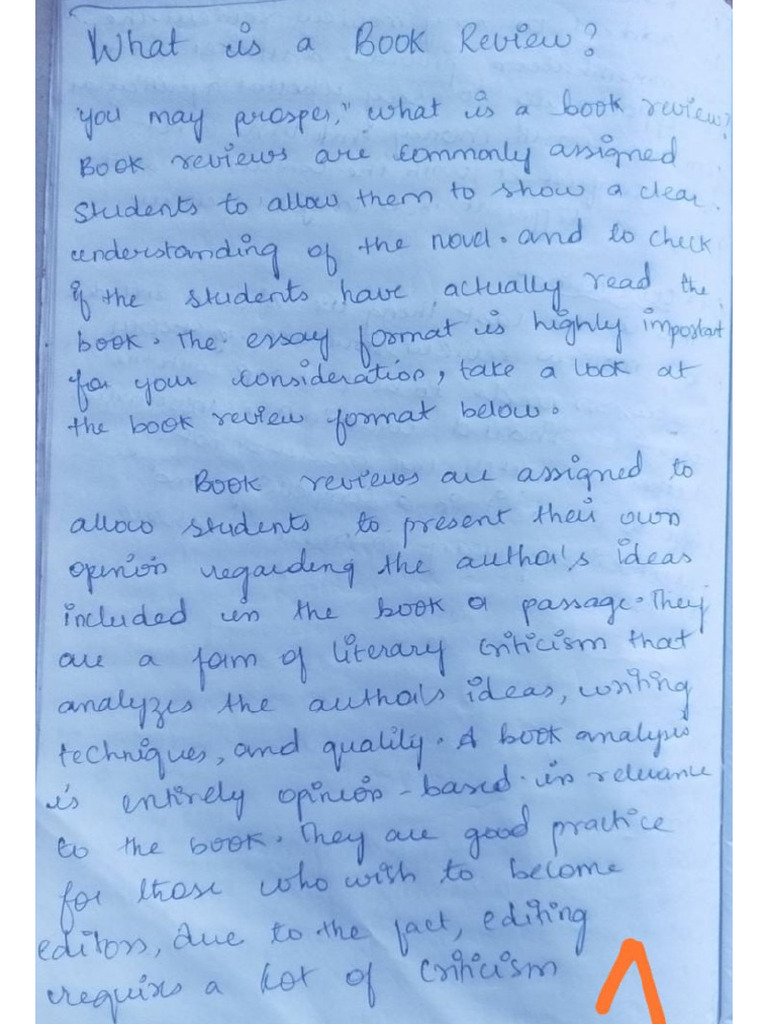 What is a Book Review?
"you may prosper," what is a book review?
Book reviews are commonly assigned
Students to allow them to show a clear
understanding of the novel. and to check
if the students have actually read the
book. The essay format is highly important
for your consideration, take a look at
the book review format below.
Book reviews are assigned to
allow students to present their own
opinion regarding the author's ideas
included in the book or passage. They
are a form of literary criticism that
analyzes the author's ideas, writing
techniques, and quality. A book analysis
is entirely opinion-based in relevance
to the book. They are good practice
for those who wish to become
editors, due to the fact, editing
requires a lot of criticism